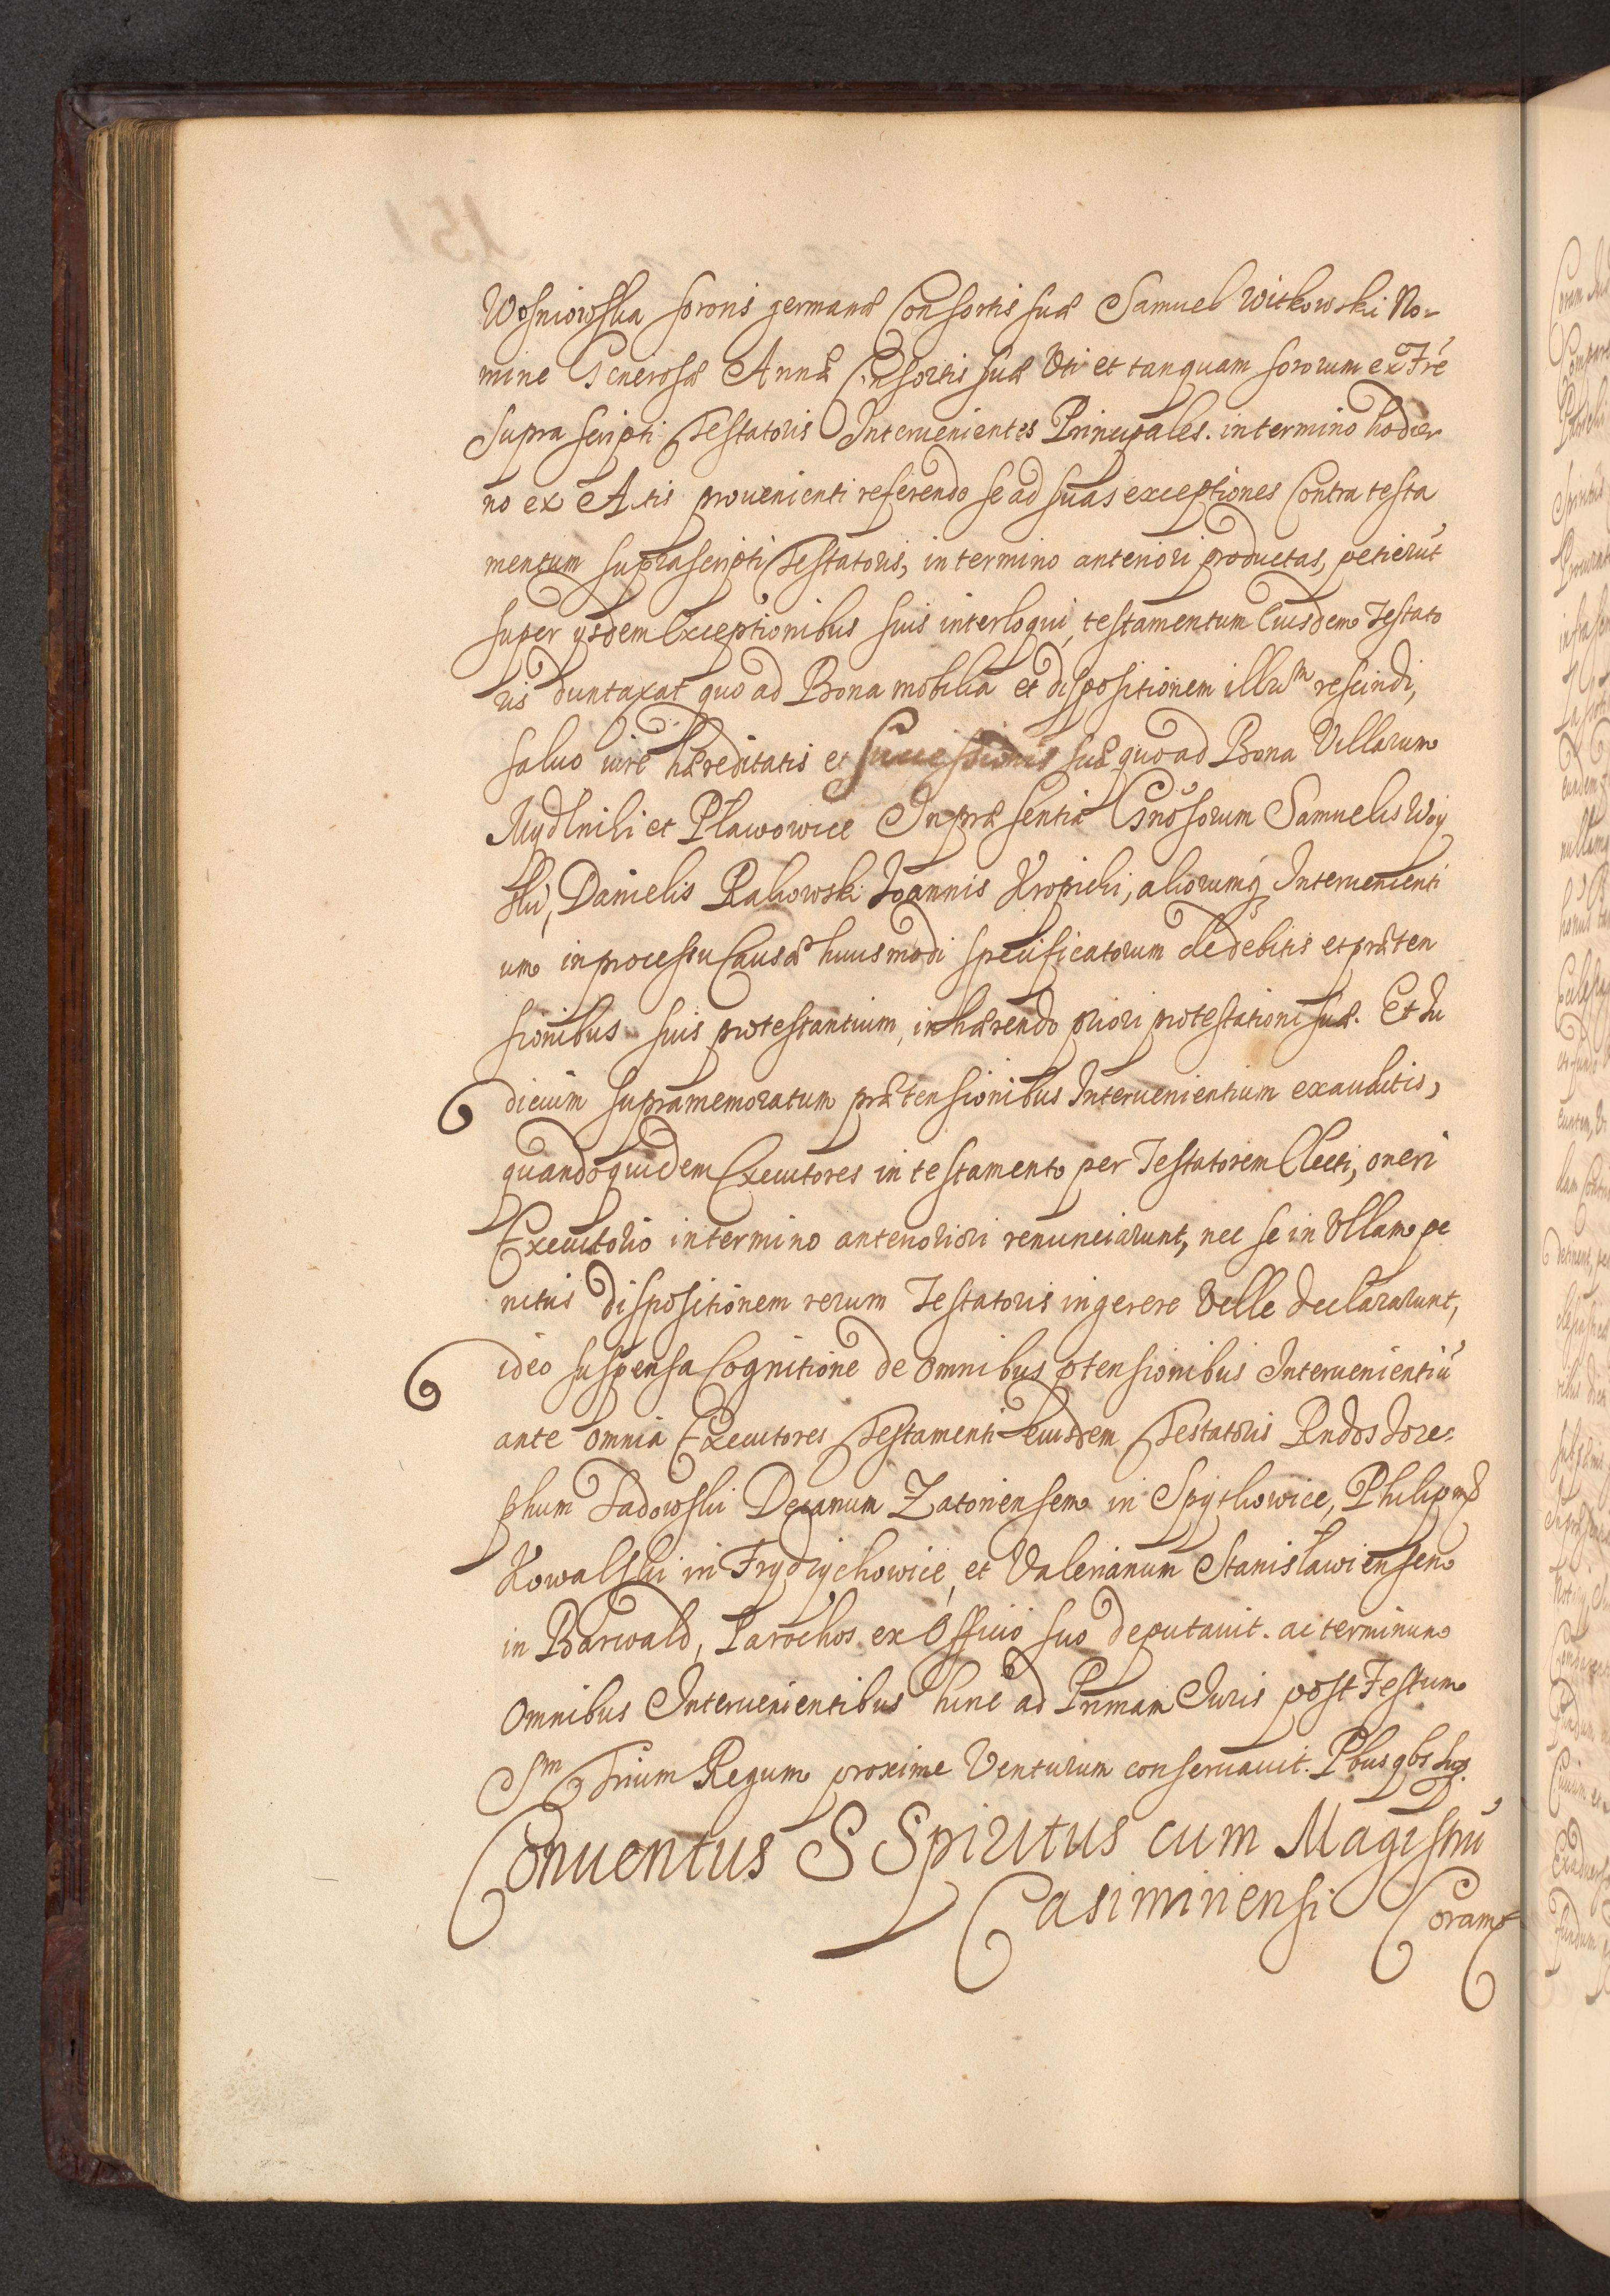 Wosniowska sororis germanæ Consortis suæ Samuel Witkowski No-
mine Generosæ Annæ Consortis suæ Uti et tanquam sororum ex Fre
supra scripti Testatoris Intervenientes Principales. in termino hodier
no ex Actis provenienti referendo se ad suas exceptiones Contra testa
mentum suprascripti Testatoris, in termino anteriori productas, petierūt
super ysdem Exceptionibus suis interloqui, testamentum Eiusdem Testato
ris duntaxat quo ad Bona mobilia et dispositionem illarū rescindi,
salvo iure hæreditatis et Successionis suæ quo ad Bona Villarum
Mydlniki et Pławowice In præsentia Gnosorum Samuelis Woy
ski, Danielis Rakowski Joannis Kropicki, aliorumq Intervenienti
um in processu Causæ huiusmodi specificatorum de debitis et præten
sionibus suis protestantium, inhærendo priori protestationi suæ. Et Iu
dicium supramemoratum prætensionibus Intervenientium exauditis,
quandoquidem Executores in testamento per Testatorem Electi, oneri
Executorio in termino anterioriori renunciarunt, nec se in Ullam pe
nitus dispositionem rerum Testatoris ingerere Velle declararunt,
ideo suspensa Cognitione de omnibus ptensionibus Intervenientiū
ante omnia Executores Testamenti eiusdem Testatoris Rndos Jose=
phum Sadowski Decanum Zatoriensem in Spytkowice, Philipmq
Kowalski in Frydrychowice, et Valerianum Stanislawiensem
in Barwald, Parochos ex Officio suo deputavit. ac terminum
Omnibus Intervenientibus hinc ad Primam Juris post Festum
Trium Regum proxime Venturum conservavit. Pbus qbs sup.
Conventus S Spiritus cum Magistrū
Casimiriensi Coram